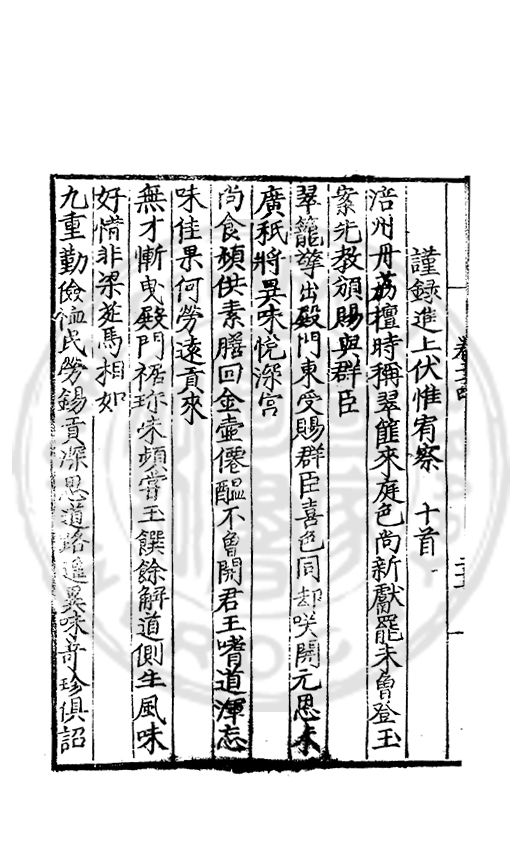 謹録進上伏惟宥察　十首
涪州丹荔擅時稱翠籠來庭色尚新獻罷未曾登玉
案先教頒賜與群臣
翠籠擎出殿門東受賜群臣喜色同却咲開元恩未
廣秖將異味悅深宮
尚食頻供素膳回金壷僊醞不曾開君王嗜道渾忘
味佳果何勞遠貢來
無才慚曳殿門裾珎味頻嘗玉饌餘解道側生風味
好慚非梁苑馬相如
九重勤儉恤民勞錫貢深思道路遥異味竒珍俱詔